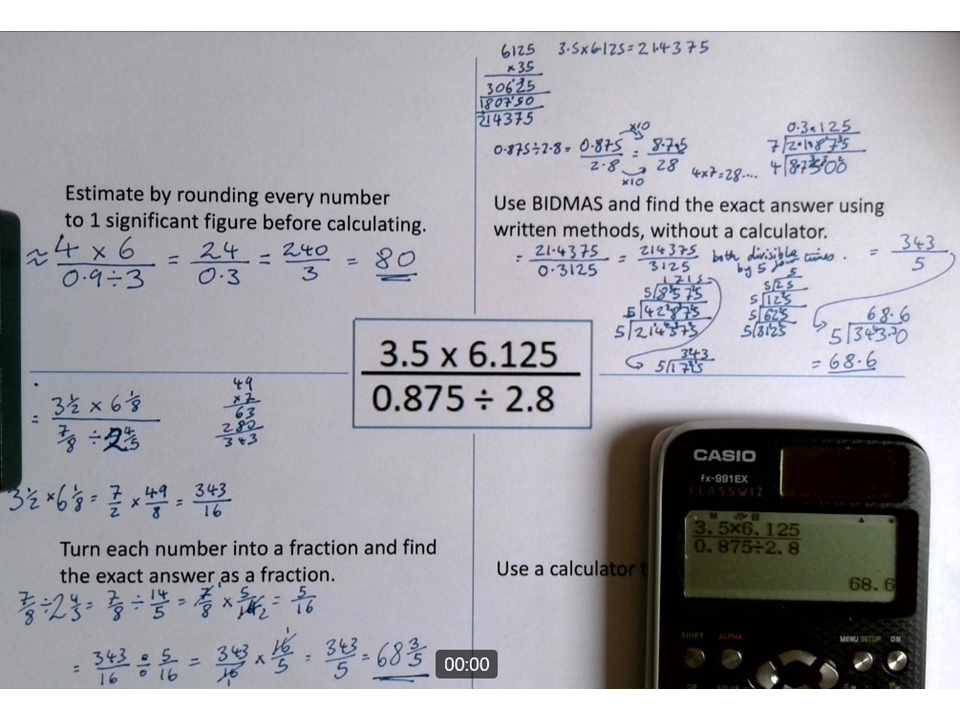 6125
×35
30625
180750
214375
3.5×6.125=21.4375
0.875÷2.8 = 0.875/2.8 = 8.75/28
×10
×10
4×7=28....
0.3125
7|2.1875
4|8.7500
Estimate by rounding every number
to 1 significant figure before calculating.
≈ 4 × 6 / 0.9÷3 = 24/0.3 = 240/3 = 80
Use BIDMAS and find the exact answer using
written methods, without a calculator.
= 21.4375/0.3125 = 214375/3125 both divisible by 5 four times. = 343/5
1715
5|8575
5|42875
5|214375
343
5|1715
5
5|25
5|125
5|625
5|3125
68.6
5|343.0
= 68.6
3.5 x 6.125
0.875 ÷ 2.8
= 3½ × 6⅛ / ⅞ ÷ 2⅘
49
×7
63
280
343
3½ × 6⅛ = 7/2 × 49/8 = 343/16
Turn each number into a fraction and find
the exact answer as a fraction.
7/8 ÷ 2 4/5 = 7/8 ÷ 14/5 = 7/8 × 5/14 = 5/16
= 343/16 ÷ 5/16 = 343/16 × 16/5 = 343/5 = 68 3/5
Use a calculator t
CASIO
fx-991EX
CLASSWIZ
3.5×6.125
0.875÷2.8
68.6
SHIFT ALPHA MENU SETUP ON
00:00